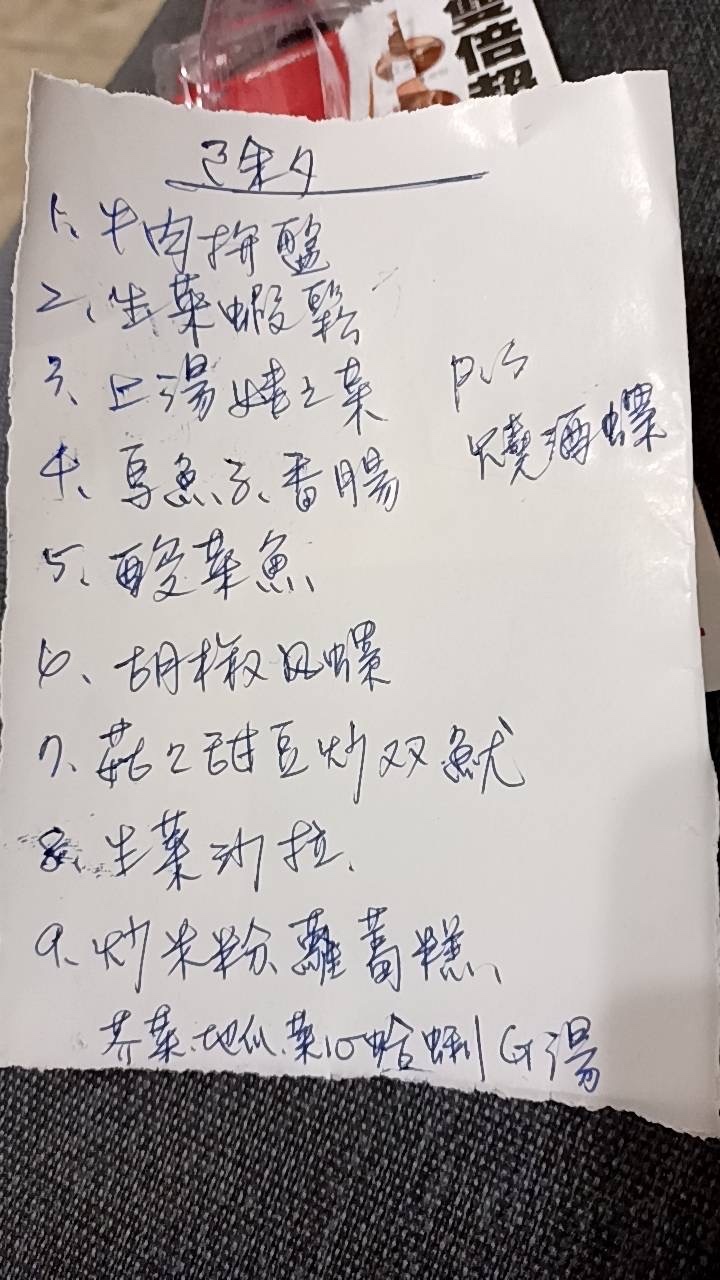 雙倍超
除夕
1、牛肉拼盤
2、生菜蝦鬆
3、上湯娃娃菜
P.S
燒酒螺
4、烏魚子、香腸
5、酸菜魚
6、胡椒风螺
7、菇菇甜豆炒双魷
8、生菜沙拉.
9、炒米粉、蘿蔔糕、
芥菜、地瓜菜 10蛤蜊G湯